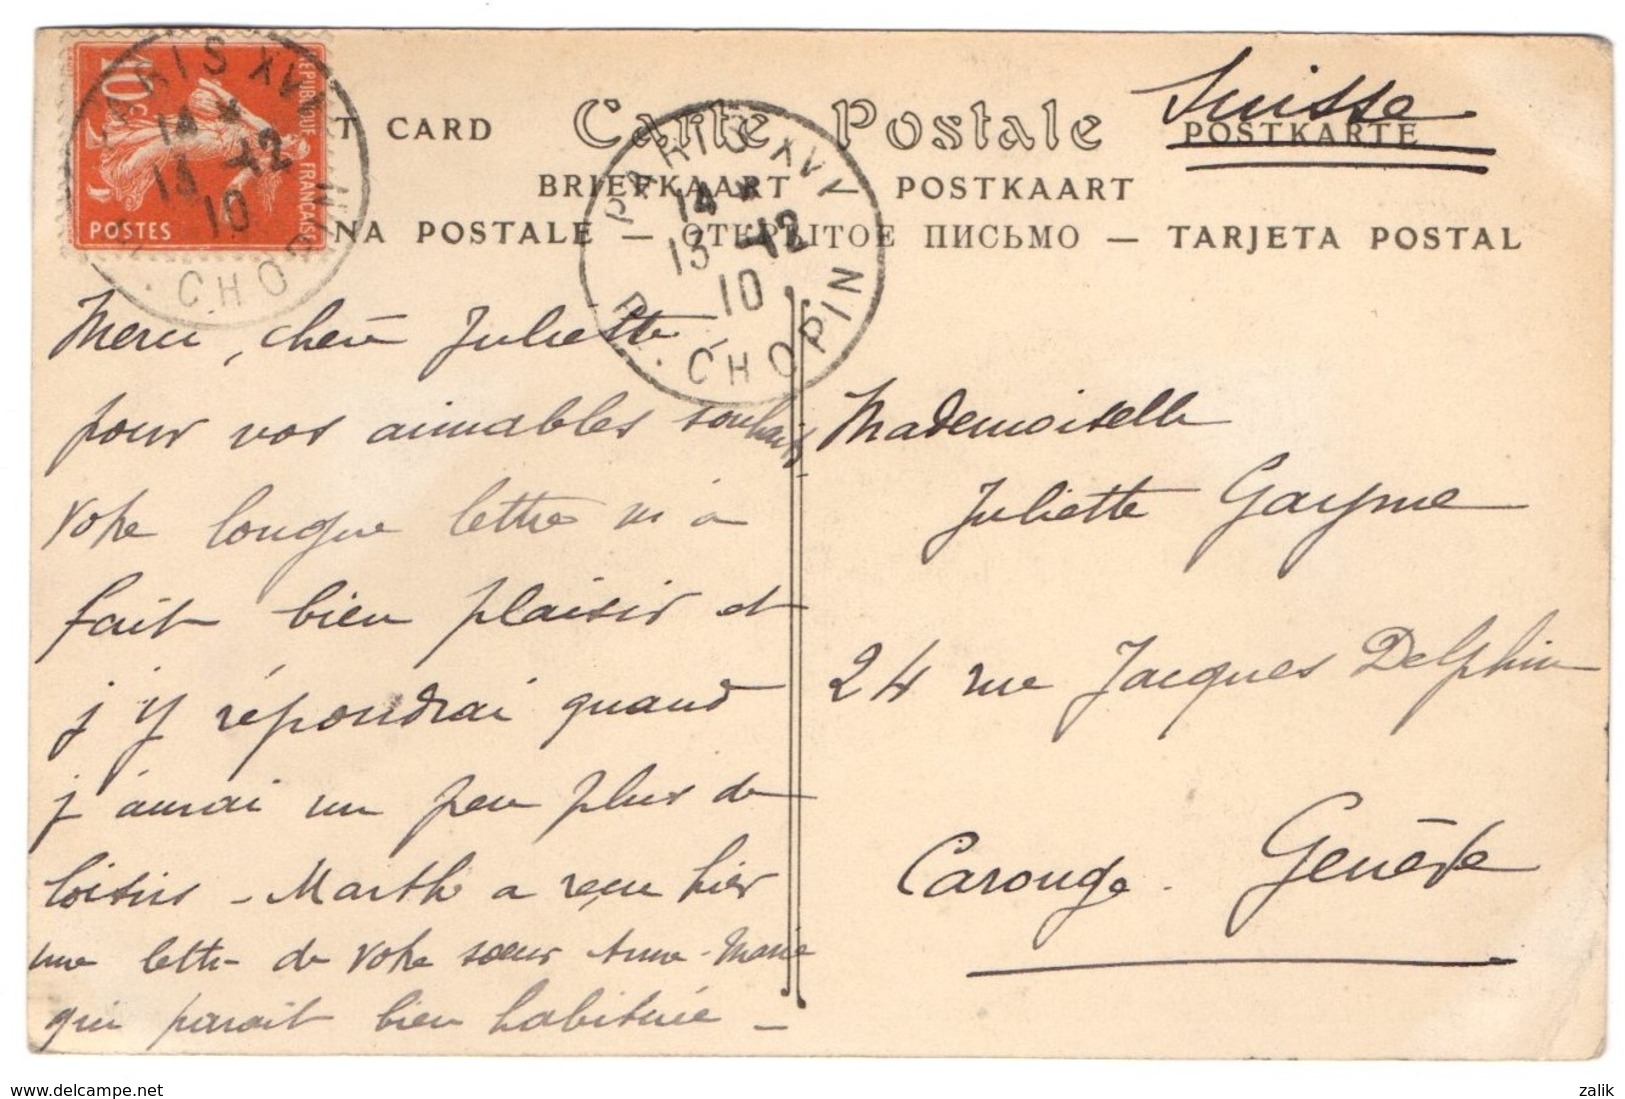 Suisse
CARD Carte Postale POSTKARTE
BRIEFKAART — POSTKAART
NA POSTALE — ОТКРЫТОЕ ПИСЬМО — TARJETA POSTAL
10c
REPUBLIQUE FRANCAISE
POSTES
PARIS XVI
14 *
13 -12
10
R. CHOPIN
PARIS XVI
14 *
13 -12
10
R. CHOPIN
Merci, chère Juliette,
pour vos aimables souhaits
votre longue lettre m'a
fait bien plaisir et
j'y répondrai quand
j'aurai un peu plus de
loisirs - Marthe a reçu hier
une lettre de votre sœur Anne-Marie
qui parait bien habituée -
Mademoiselle
Juliette Gayme
24 rue Jacques Delphin
Carouge. Genève
www.delcampe.net
zalik